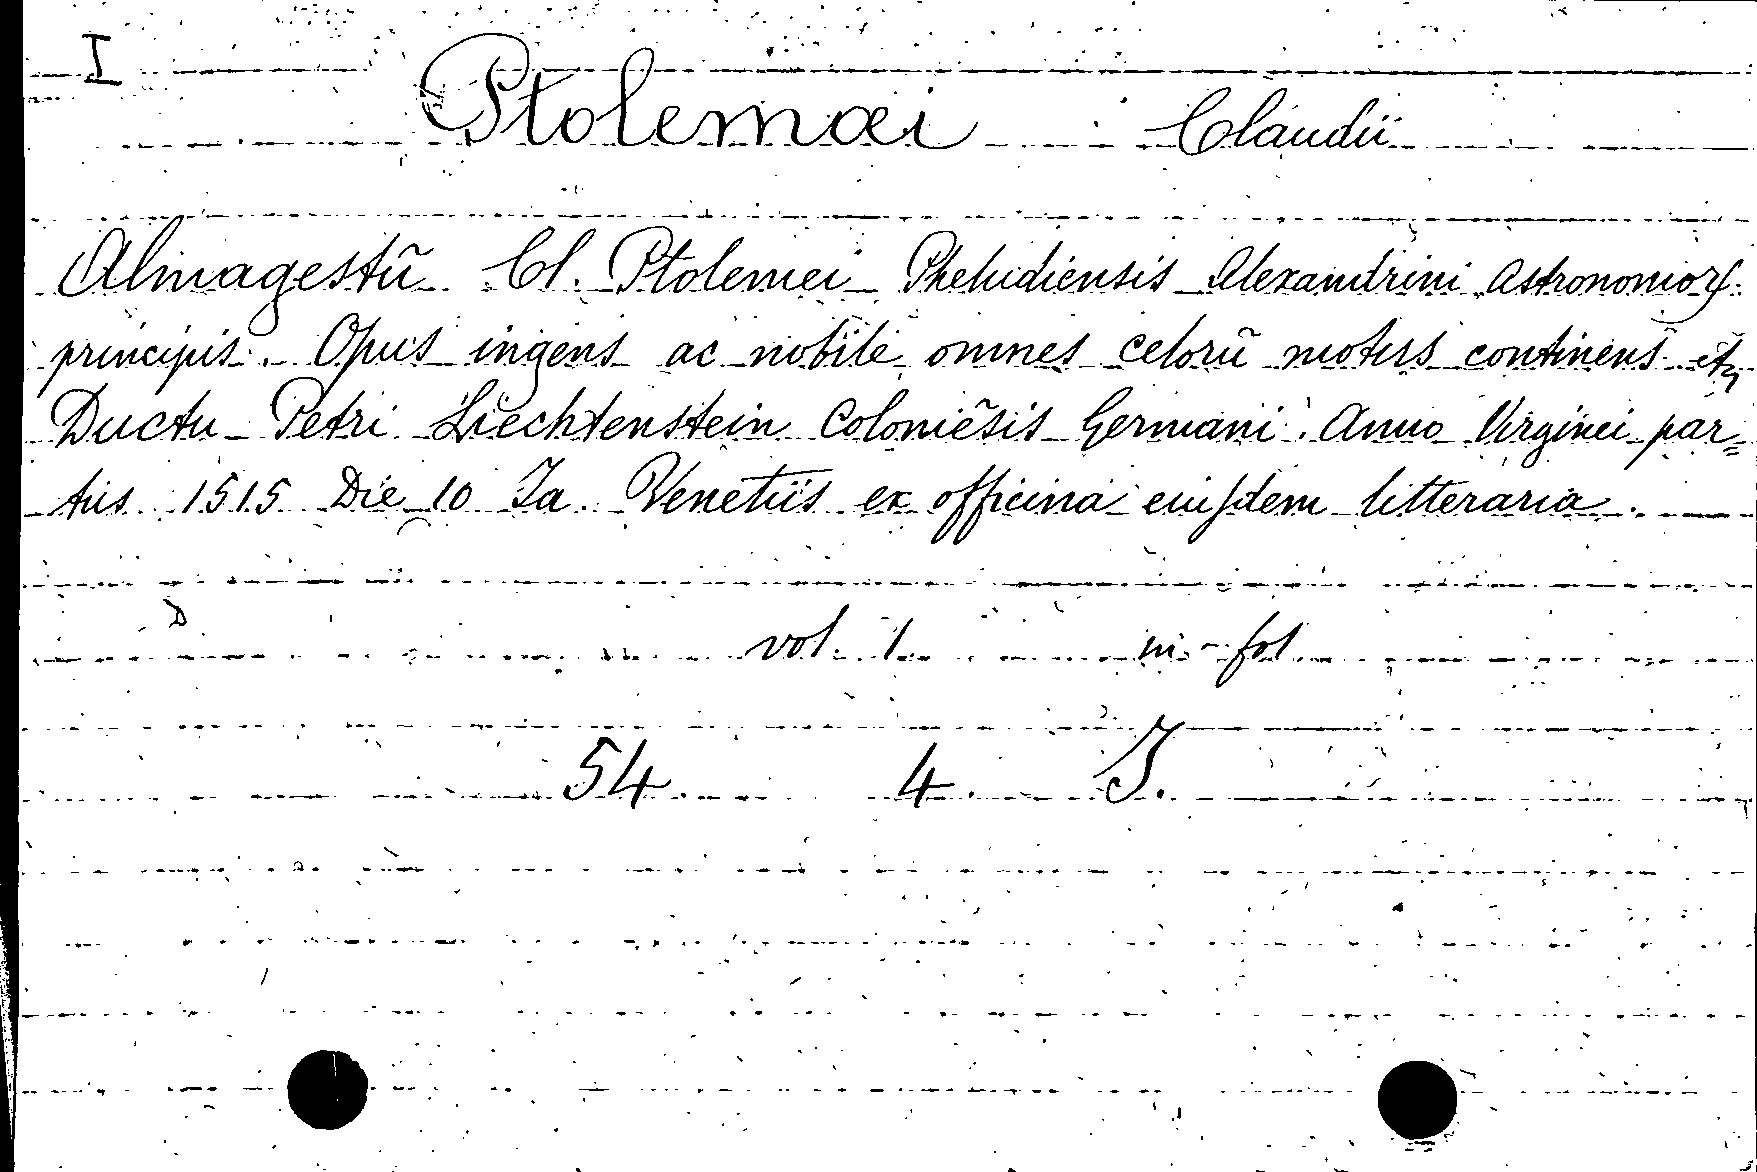 I
Ptolemæi Claudii
Almagestũ Cl. Ptolemei Pheludiensis Alexandrini Astronomorꝝ
principis. Opus ingens ac nobile omnes celorũ motus continens etc
Ductu Petri Liechtenstein Coloniẽsis Germani. Anno Virginei par=
tus 1515 Die 10 Ja. Venetiis ex officina eiuſdem litteraria.
vol. 1. in-fol
54. 4. J.